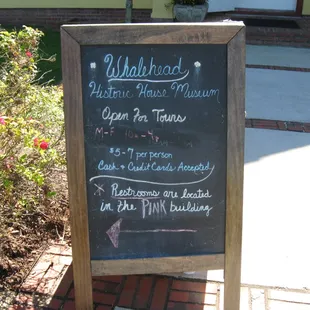 Whalehead
Historic House Museum
Open For Tours
M-F 10a-4p
$5-7 per person
Cash & Credit Cards Accepted
Restrooms are located
in the PINK building